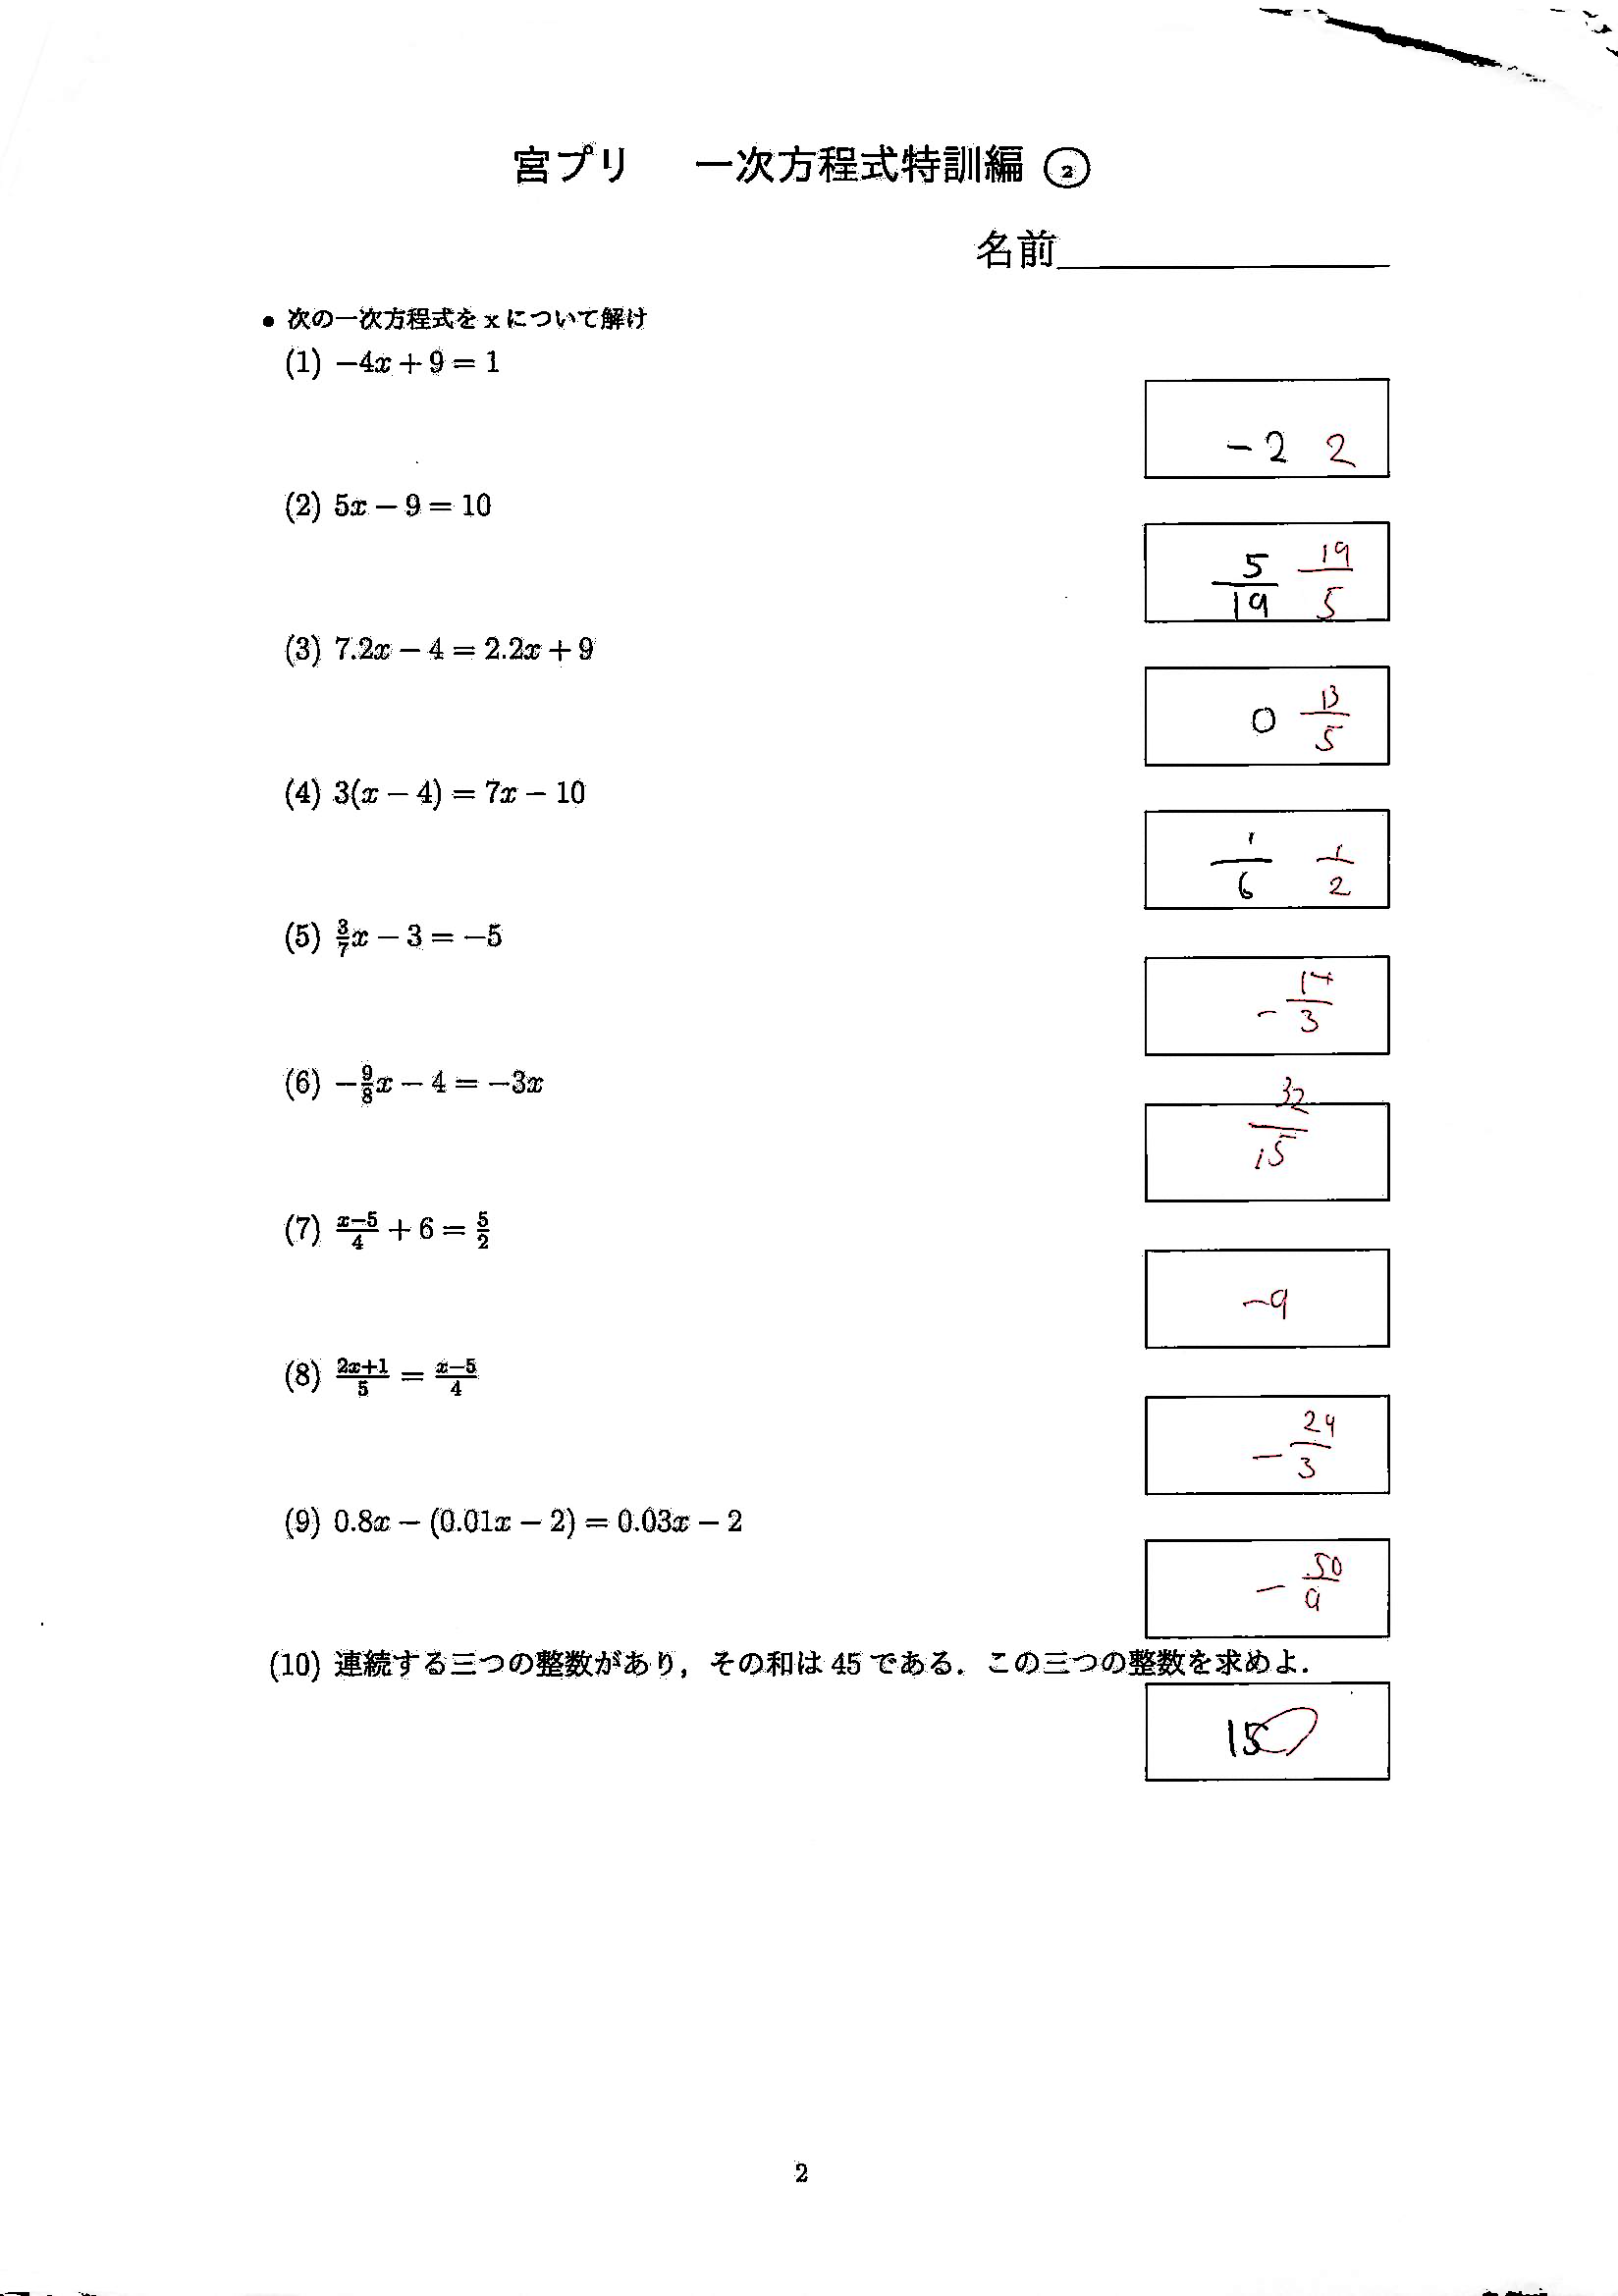 宮プリ 一次方程式特訓編 ②
名前
● 次の一次方程式を x について解け
(1) −4x + 9 = 1
−2 2
(2) 5x − 9 = 10
5/19 19/5
(3) 7.2x − 4 = 2.2x + 9
0 13/5
(4) 3(x − 4) = 7x − 10
1/6 1/2
(5) 3/7x − 3 = −5
−14/3
(6) −9/8x − 4 = −3x
32/15
(7) x−5/4 + 6 = 5/2
−9
(8) 2x+1/5 = x−5/4
−29/3
(9) 0.8x − (0.01x − 2) = 0.03x − 2
−50/9
(10) 連続する三つの整数があり，その和は 45 である．この三つの整数を求めよ．
15
2